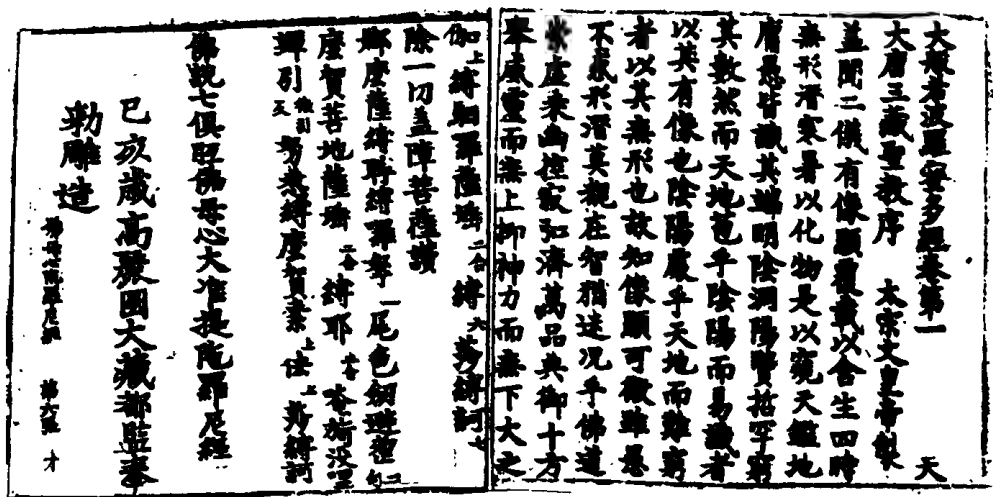 大般若波羅蜜多經卷第一 天
大唐三藏聖教序 太宗文皇帝製
蓋聞二儀有像顯覆載以含生四時
無形潛寒暑以化物是以窺天鑑地
庸愚皆識其端明陰洞陽賢哲罕窮
其數然而天地苞乎陰陽而易識者
以其有像也陰陽處乎天地而難窮
者以其無形也故知像顯可徵雖愚
不惑形潛莫覩在智猶迷況乎佛道
崇虛乘幽控寂弘濟萬品典御十方
舉威靈而無上抑神力而無下大之
伽上 縛 羅薩 二合 縛六 縛訶七
除一切蓋障菩薩讚
娜麼薩縛 縛羅拏一尾色劒避 句二
麼賀菩地薩 二合 縛耶
引 縛麼賀 上 上 縛訶
佛說七俱胝佛母心大准提陀羅尼經
己亥歲高麗國大藏都監奉
勅雕造
佛母 陀羅尼經 第六張 才